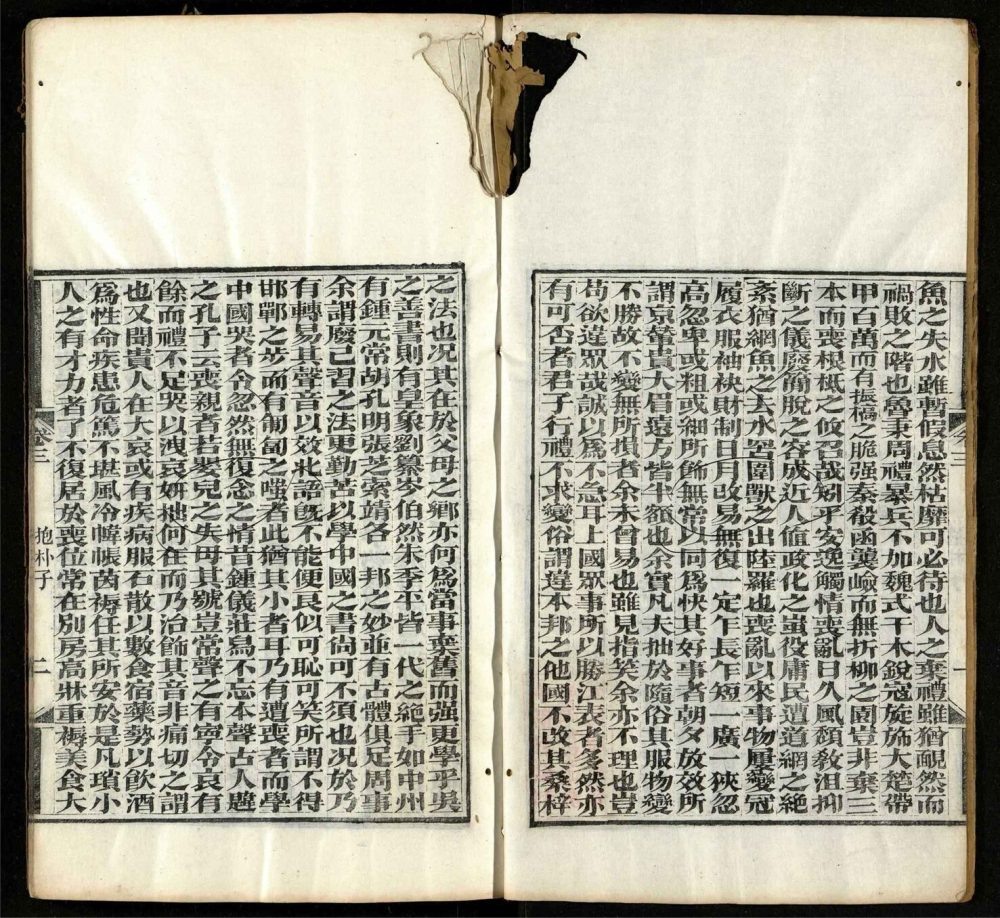 魚之失水雖暫假息然枯靡可必待也人之棄禮雖猶靦然而
禍敗之階也魯秉周禮暴兵不加魏式干木銳寇旋旆大楚帶
甲百萬而有振槁之脆强秦殽函襲嶮而無折柳之固豈非棄三
本而喪根柢之攸召哉矧乎安逸觸情喪亂日久風頹敎沮抑
斷之儀廢簡脫之容成近人值政化之蚩役庸民遭道網之絕
紊猶網魚之去水罟圍獸之出陸羅也喪亂以來事物屢變冠
履衣服袖袂財制日月改易無復一定乍長乍短一廣一狹忽
高忽卑或粗或細所飾無常以同爲快其好事者朝夕放效所
謂京輦貴大眉遠方皆半額也余實凡夫拙於隨俗其服物變
不勝故不變無所損者余未曾易也雖見指笑余亦不理也豈
苟欲違眾哉誠以爲不急耳上國眾事所以勝江表者多然亦
有可否者君子行禮不求變俗謂違本邦之他國不改其桑梓
之法也况其在於父母之鄉亦何爲當事棄舊而强更學乎吳
之善書則有皇象劉纂岑伯然朱季平皆一代之絕手如中州
有鍾元常胡孔明張芝索靖各一邦之妙並有古體俱足周事
余謂廢已習之法更勤苦以學中國之書尚可不須也况於乃
有轉易其聲音以效北語旣不能便良似可恥可笑所謂不得
邯鄲之步而有匍匐之嗤者此猶其小者耳乃有遭喪者而學
中國哭者令忽然無復念之情昔鍾儀莊舄不忘本聲古人韙
之孔子云喪親者若嬰兒之失母其號豈常聲之有寧令哀有
餘而禮不足哭以洩哀妍拙何在而乃治飾其音非痛切之謂
也又聞貴人在大哀或有疾病服石散以數食宿藥勢以飲酒
爲性命疾患危篤不堪風冷幃帳茵褥任其所安於是凡瑣小
人之有才力者了不復居於喪位常在別房高牀重褥美食大
卷三 抱朴子 二